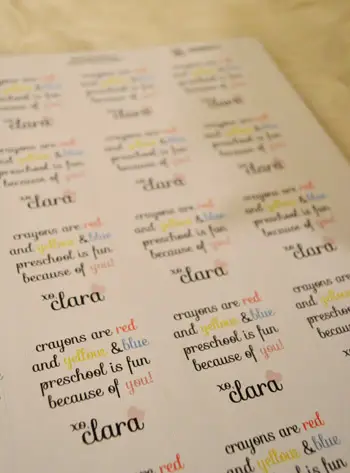 crayons are red
and yellow & blue
preschool is fun
because of you!
xo, clara
crayons are red
and yellow & blue
preschool is fun
because of you!
xo, clara
crayons are red
and yellow & blue
preschool is fun
because of you!
xo, clara
crayons are red
and yellow & blue
preschool is fun
because of you!
xo, clara
crayons are red
and yellow & blue
preschool is fun
because of you!
xo, clara
crayons are red
and yellow & blue
preschool is fun
because of you!
xo, clara
crayons are red
and yellow & blue
preschool is fun
because of you!
xo, clara
crayons are red
and yellow & blue
preschool is fun
because of you!
xo, clara
crayons are red
and yellow & blue
preschool is fun
because of you!
xo, clara
crayons are red
and yellow & blue
preschool is fun
because of you!
xo, clara
crayons are red
and yellow & blue
preschool is fun
because of you!
xo, clara
crayons are
and yellow
because
red
crayons are red
and yellow & blue
preschool is fun